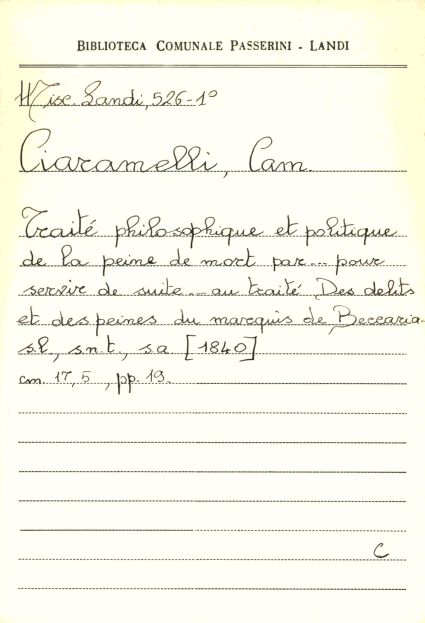 BIBLIOTECA COMUNALE PASSERINI - LANDI
Misc. Landi, 526-1°
Ciaramelli, Cam.
Traité philosophique et politique
de la peine de mort par... pour
servir de suite... au traité Des delits
et des peines du marquis de Beccaria.
s.l., s.n.t., s.a. [1840]
cm. 17,5, pp. 19.
C